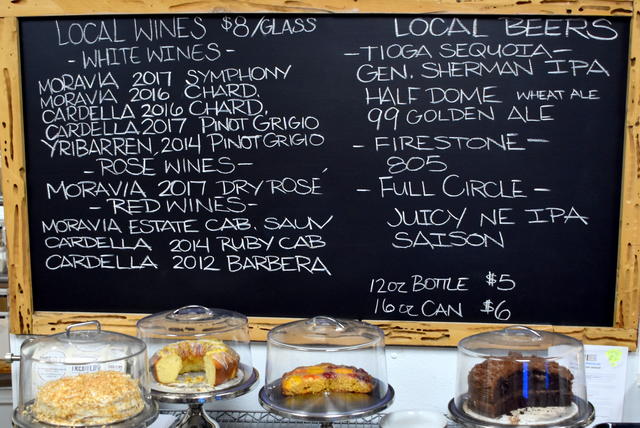 LOCAL WINES $8/GLASS
- WHITE WINES -
MORAVIA 2017 SYMPHONY
MORAVIA 2016 CHARD.
CARDELLA 2016 CHARD.
CARDELLA 2017 PINOT GRIGIO
YRIBARREN, 2014 PINOT GRIGIO
- ROSE WINES -
MORAVIA 2017 DRY ROSÉ
- RED WINES -
MORAVIA ESTATE CAB. SAUV
CARDELLA 2014 RUBY CAB
CARDELLA 2012 BARBERA
LOCAL BEERS
- TIOGA SEQUOIA -
GEN. SHERMAN IPA
HALF DOME WHEAT ALE
99 GOLDEN ALE
- FIRESTONE -
805
- FULL CIRCLE -
JUICY NE IPA
SAISON
12oz BOTTLE $5
16oz CAN $6